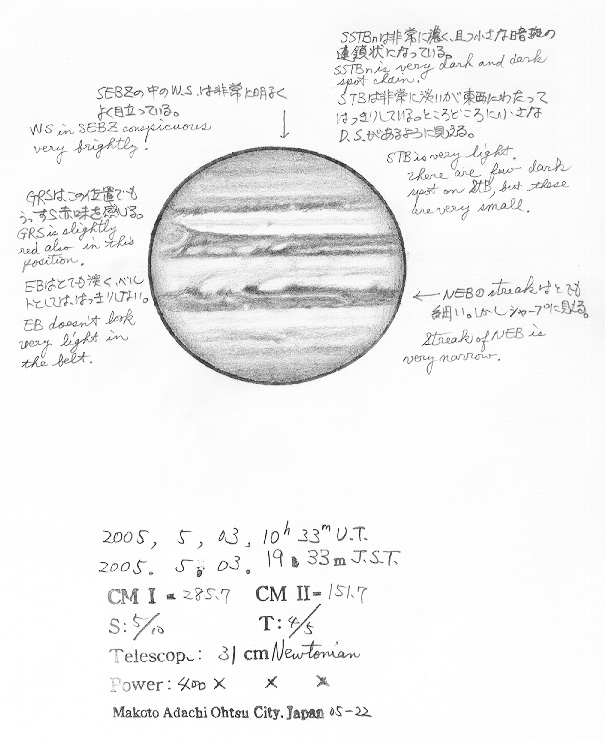 SSTBnは非常に濃く、且つ小さな暗斑の
連鎖状になっている。
SSTBn is very dark and dark
spot chain.
STBは非常に淡いが東西にわたって
はっきりしている。ところどころに小さな
D.S.があるように見える。
STB is very light.
There are few dark
spot on STB, but those
are very small.
SEBZの中のW.S.は非常に明るく
よく目立っている。
WS in SEBZ conspicuous
very brightly!
GRSはこの位置でも
うっすら赤味を感じる。
GRS is slightly
red also in this
position.
EBはとても淡く、ベル
トとしては、はっきりしない。
EB doesn't look
very light in
the belt.
← NEBのstreakはとても
細い。しかしシャープに見える。
Streak of NEB is
very narrow.
2005, 5, 03, 10h 33m U.T.
2005. 5. 03. 19h 33m J.S.T.
CM I = 285.7 CM II = 151.7
S: 5/10 T: 4/5
Telescope: 31 cm Newtonian
Power: 400 × × ×
Makoto Adachi Ohtsu City. Japan 05-22